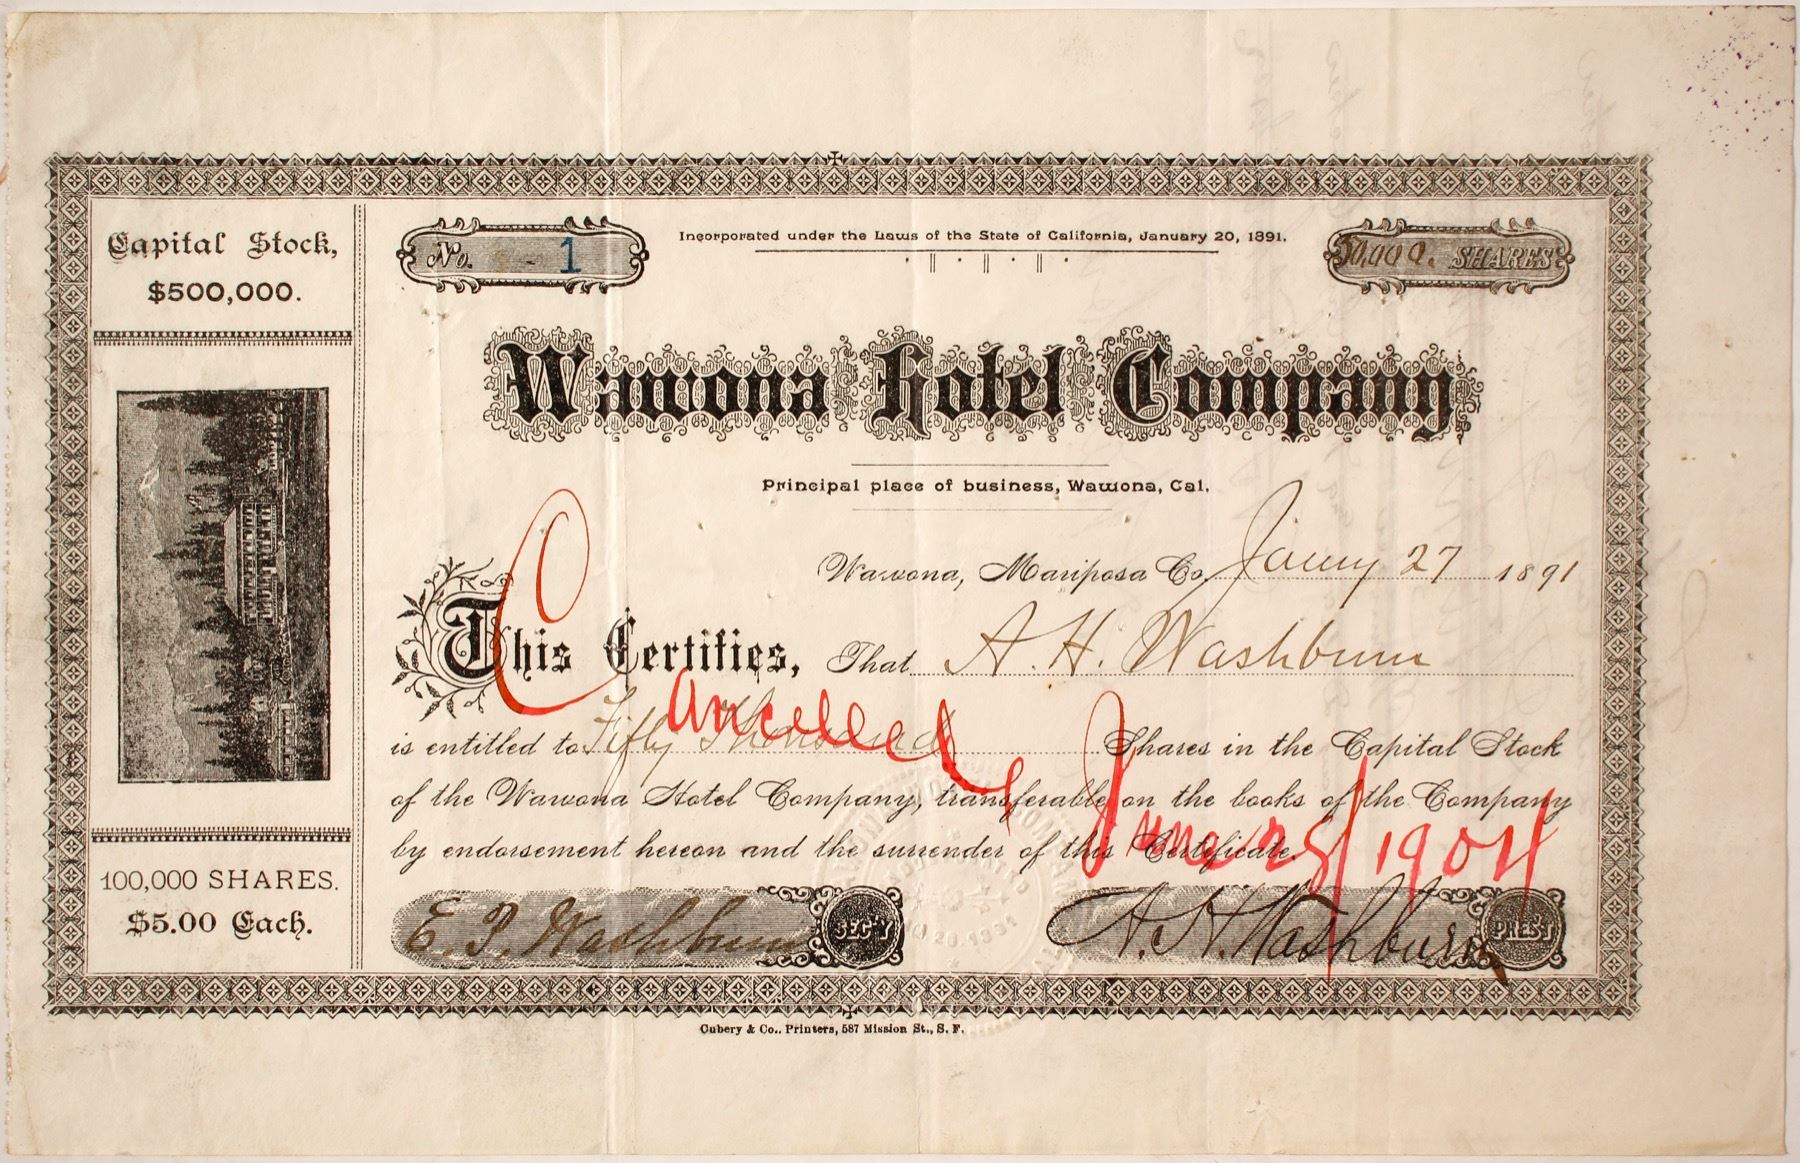 Capital Stock,
$500,000.
100,000 SHARES.
$5.00 Each.
No. 1
Incorporated under the Laws of the State of California, January 20, 1891.
50,000. SHARES
Wawona Hotel Company
Principal place of business, Wawona, Cal.
Wawona, Mariposa Co. Jany 27 1891
This Certifies, That A. H. Washburn
is entitled to Fifty Thousand Shares in the Capital Stock
of the Wawona Hotel Company, transferable on the books of the Company
by endorsement hereon and the surrender of this Certificate.
Cancelled, June 28/1904
E. P. Washburn SEC'Y
A. H. Washburn PRES'T
Cubery & Co., Printers, 587 Mission St., S. F.